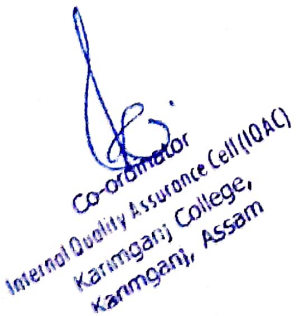 Co-ordinator
Internal Quality Assurance Cell (IQAC)
Karimganj College,
Karimganj, Assam